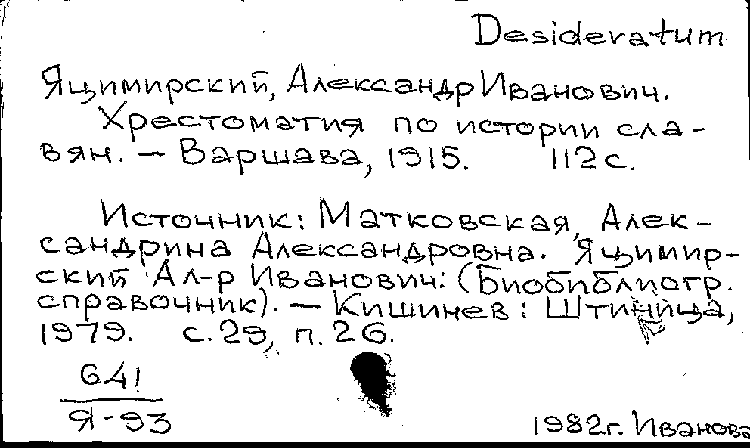 Desideratum
Яцимирский, Александр Иванович.
Хрестоматия по истории сла-
вян. — Варшава, 1915. 112 с.
Источник: Матковская, Алек-
сандрина Александровна. Яцимир-
ский Ал-р Иванович: (Биобиблиогр.
справочник). — Кишинев: Штиница,
1979. с. 29, п. 26.
641
Я-93
1982г. Иванова